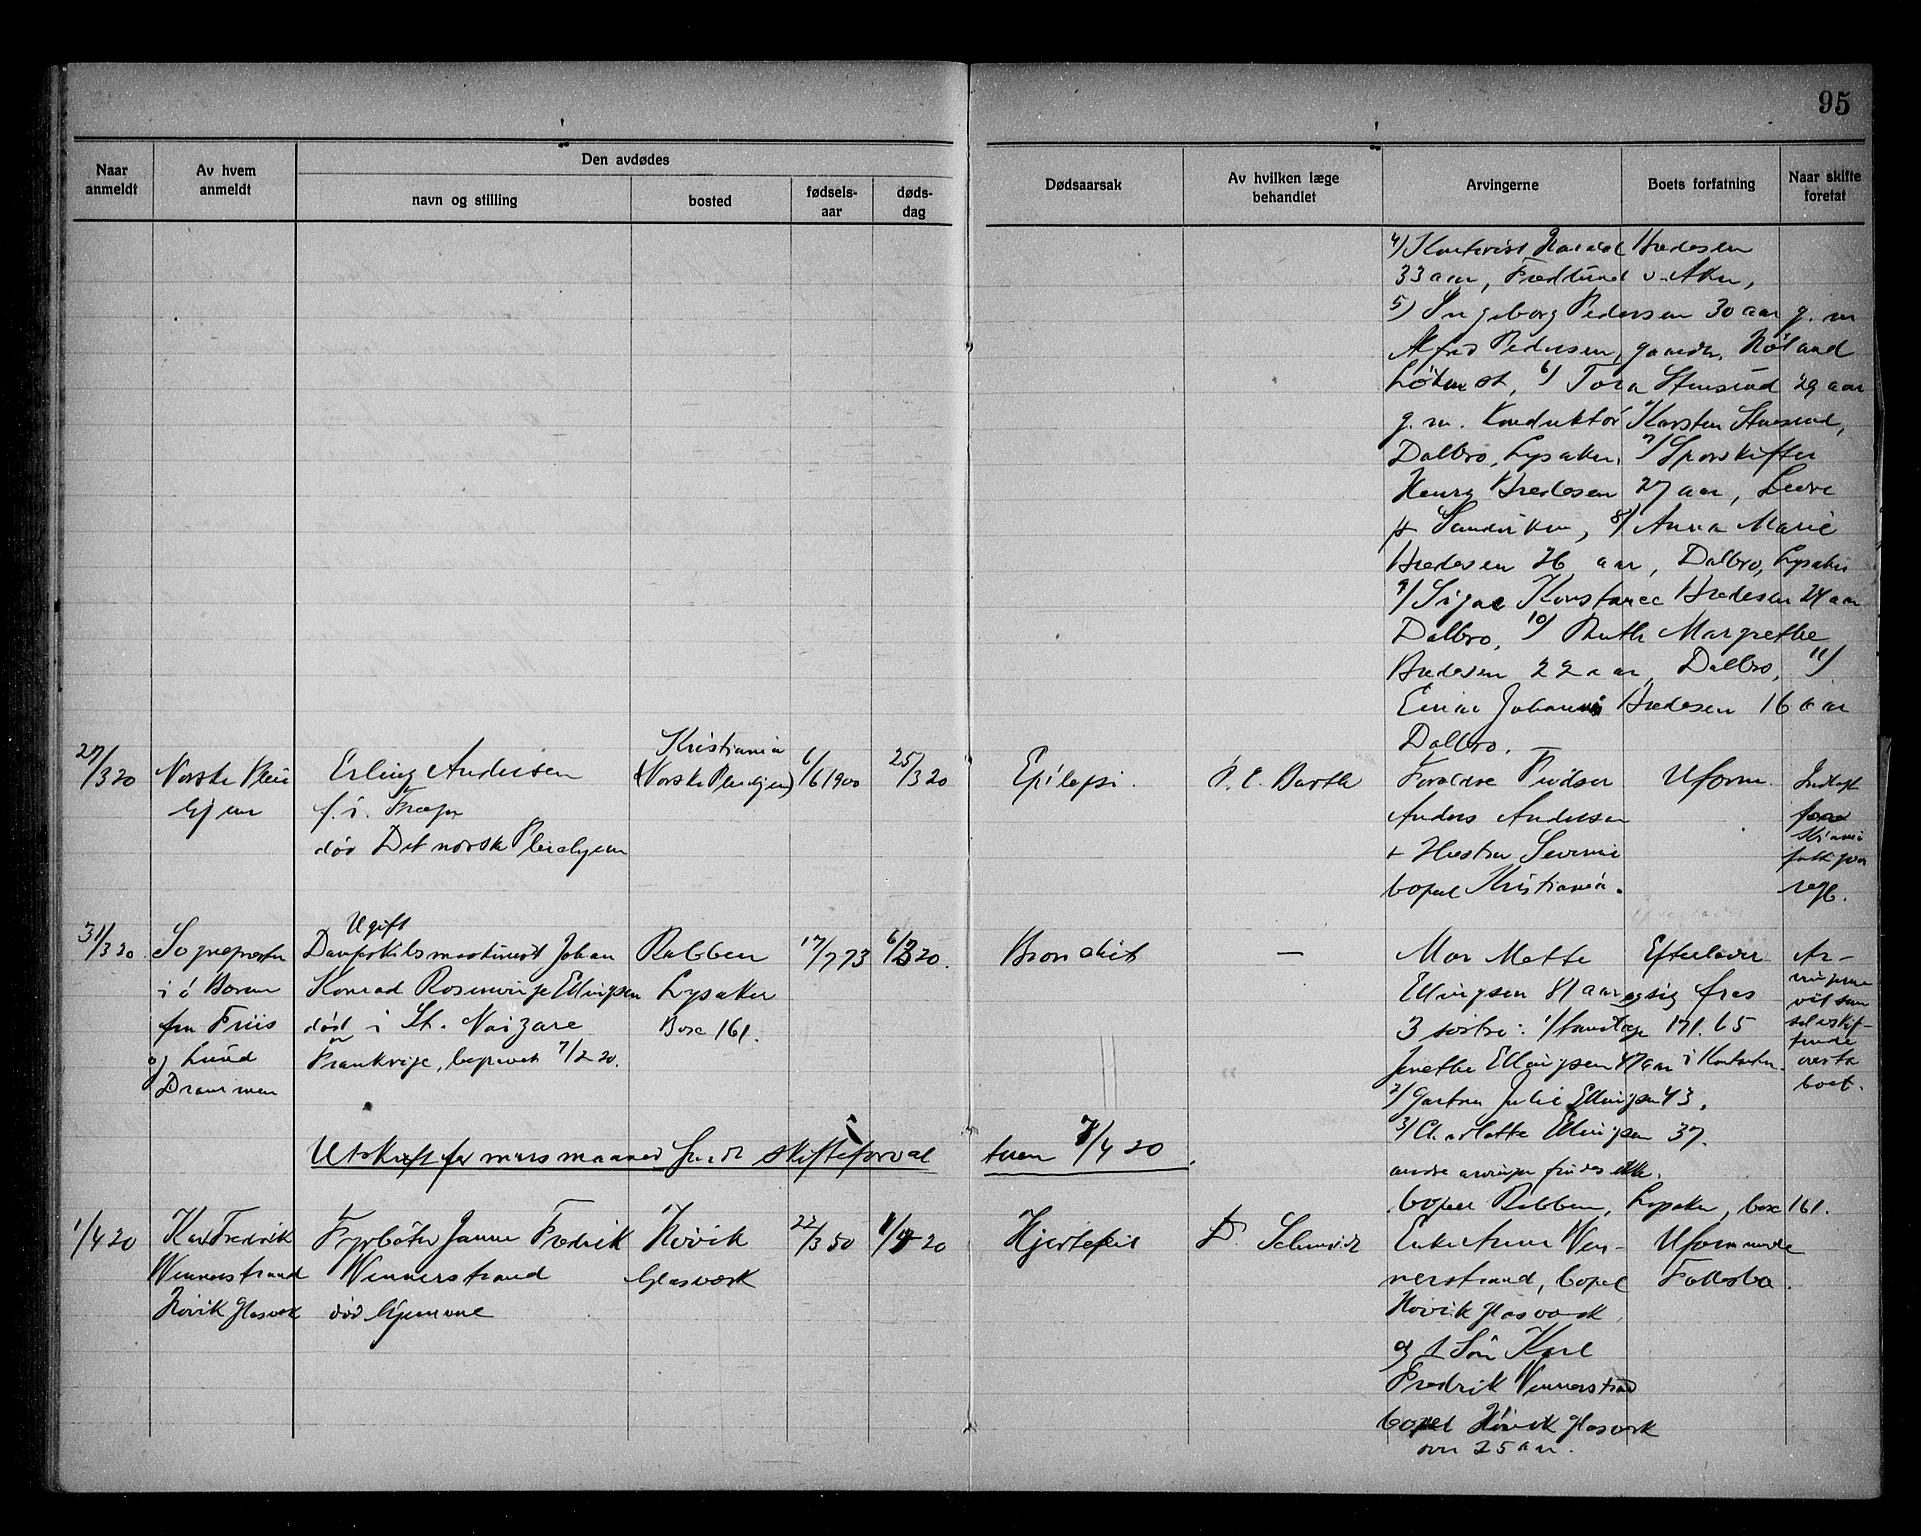 95
Naar anmeldt
Av hvem anmeldt
Den avdødes
navn og stilling
bosted
fødsels-aar
døds-dag
Dødsaarsak
Av hvilken læge behandlet
Arvingerne
Boets forfatning
Naar skifte foretat
4) Kontorist Harald Bredesen
33 aar, Fredlund v. Aker,
5) Ingeborg Pedersen 30 aar g. m
Alfred Pedersen, gaardbr.
6) Tora Stensrud 29 aar
g. m. Konduktør Karsten Stensrud,
Dalbro, Lysaker, 7) Sporskifter
Henry Bredesen 27 aar,
pr Sandviken, 8) Anna Marie
Bredesen 26 aar, Dalbro, Lysaker
9) Signe Konstance Bredesen 24 aar
Dalbro, 10) Ruth Margrethe
Bredesen 22 aar Dalbro, 11)
Einar Johannes Bredesen 16 aar
Dalbro.
27/3 20
Norske Pleie
hjem
Erling Andersen
f. i
død Det norske Pleiehjem
Kristiania
(Norske Pleiehjem)
6/6 1900
25/3 20
Epilepsi.
P. C. Barth
Forældre
Anders Andersen
+ Hustru Severine
bopæl Kristiania.
Uform.
Indlagt
31/3 20
Sognepresten
i Ø Bærum
fra Friis
og Lund
Drammen
Ugift
Dampskibsmaskinist Johan
Konrad Rosenvinge Ellingsen
død i St. Naizare
Frankrige, begravet 7/2 20.
Rabben
Lysaker
Box 161.
17/7 73
6/2 20.
Bronchit
—
Mor Mette
Ellingsen 81 aar og
3 søstre: 1/
Jenethe Ellingsen 47 aar
2/ Julie Ellingsen 43.
3/ Charlotte Ellingsen 37.
andre arvinger findes ikke.
bopæl Rabben, Lysaker, box 161.
Efterlader
sig
171.65
i Kontanter.
Ar-
vingerne
vil
overta
boet.
Utskrift for mars maaned sendt skifteforval
teren 7/4 20
1/4 20
Karl Fredrik
Wennerstrand
Høvik Glasverk
Fyrbøter Janne Fredrik
Wennerstrand
død hjemme
Høvik
Glasværk
22/3 50
1/4 20
Hjertefeil
Dr Schmidt
Enkefrue Wen-
nerstrand, bopæl
Høvik glasværk
og 1 Søn Karl
Fredrik Wennerstrand
bopæl Høvik glasværk
over 25 aar.
Uformuende
Fællesbo.